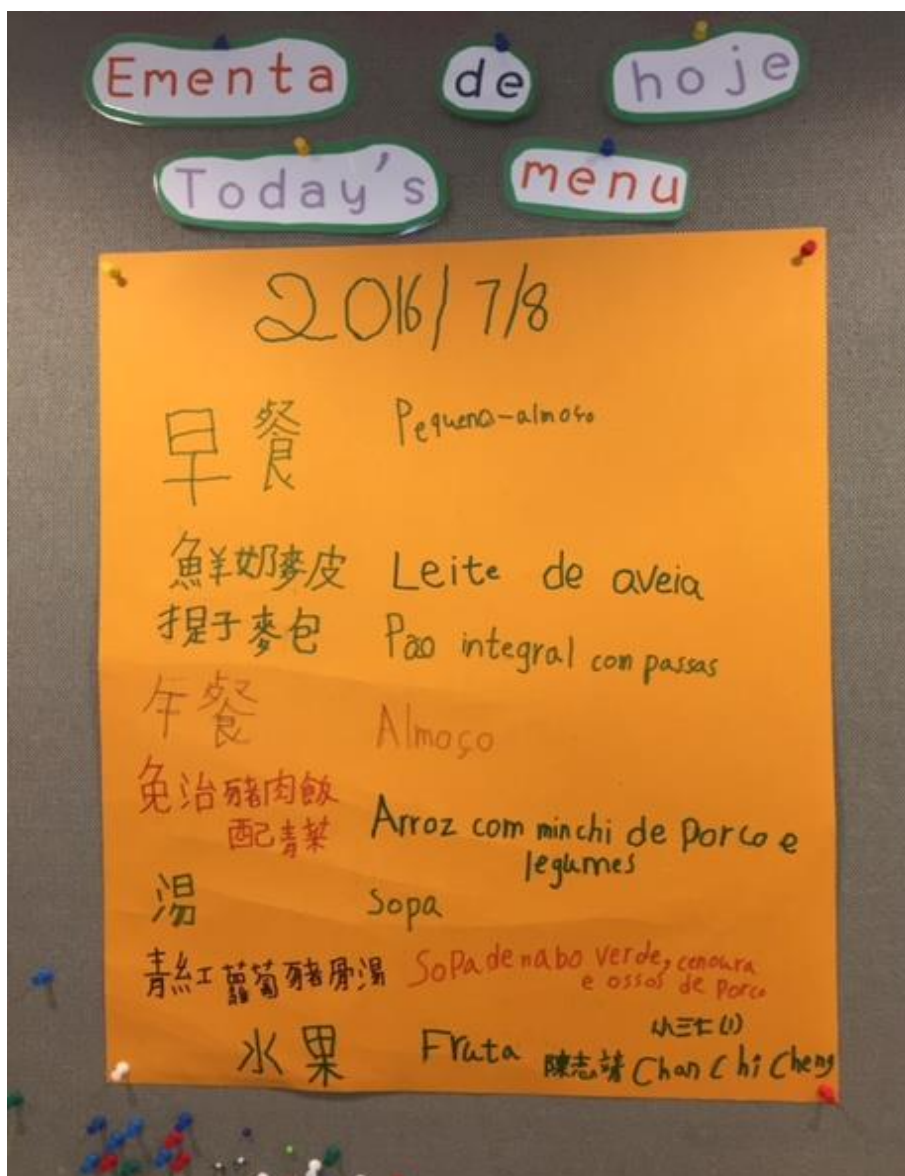 Ementa de hoje
Today's menu
2016/7/8
早餐 Pequeno-almoço
鮮奶麥皮 Leite de aveia
提子麥包 Pão integral com passas
午餐 Almoço
免治豬肉飯 Arroz com minchi de Porco e
配青菜 legumes
湯 Sopa
青紅蘿蔔豬骨湯 Sopa de nabo verde, cenoura
e ossos de Porco
水果 Fruta
小三仁(1)
陳志靖 Chan Chi Cheng